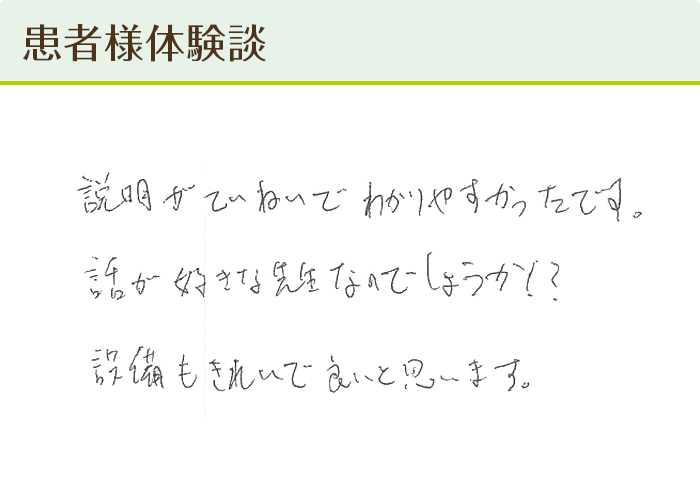 患者様体験談
説明がていねいでわかりやすかったです。
話が好きな先生なのでしょうか!?
設備もきれいで良いと思います。